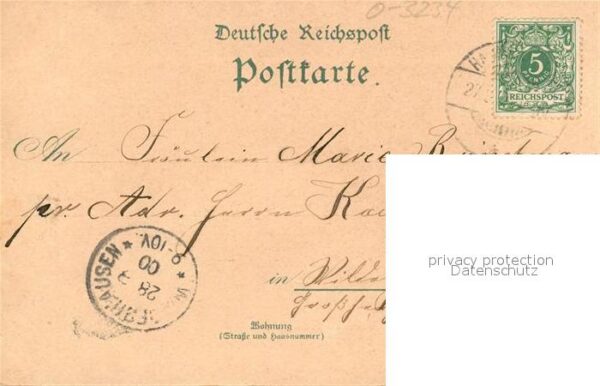 0-3234
Deutsche Reichspost
Postkarte.
5
PFENNIG
REICHSPOST
An Fräulein Marie
pr. Adr. Herrn
in Wilde
Großh
28 9 00
9-10V.
Wohnung
(Straße und Hausnummer)
privacy protection
Datenschutz